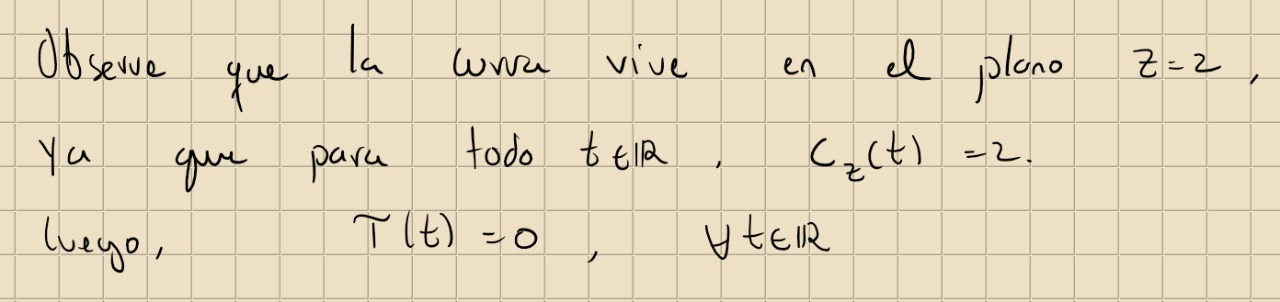 Observe que la curva vive en el plano z=2,
ya que para todo t∈ℝ, C_z(t) =2.
luego, τ(t) =0, ∀t∈ℝ